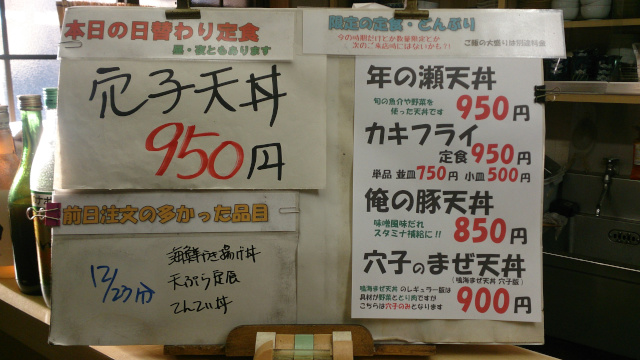 本日の日替わり定食
昼・夜ともあります
穴子天丼
950円
前日注文の多かった品目
12/27分
海鮮かき揚げ丼
天ぷら定食
てんてい丼
限定の定食・どんぶり
今の時期だけとか数量限定とか
次のご来店時にはないかも?!
ご飯の大盛り は別途料金
年の瀬天丼
旬の魚介や野菜を
使った天丼です
950円
カキフライ
定食 950円
単品 並皿 750円 小皿 500円
俺の豚天丼
味噌風味だれ
スタミナ補給に!!
850円
穴子のまぜ天丼
(鳴海まぜ天丼 穴子飯)
鳴海まぜ天丼 のレギュラー版は
具材が野菜ととり肉ですが
こちらは穴子のみとなります
900円